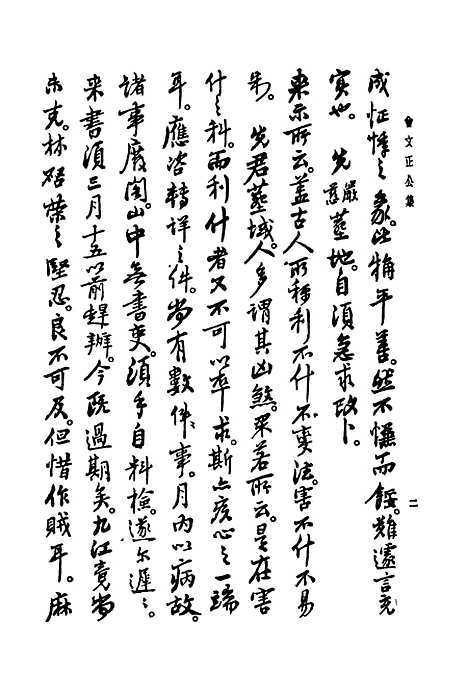 曾文正公集
二
成怔悸之象。比稍平善。然不慊而餒。難遽言充
實也。先嚴慈墓地。自須急求改卜。
來示所云。蓋古人所稱利不什不變法。害不什不易
制。先君墓域。人多謂其凶煞。果若所云。是在害
什之科。而利什者又不可以卒求。斯亦疚心之一端
耳。應咨轉詳之件。尚有數件事。月內以病故。
諸事廢閣。山中無書吏。須手自料檢。遂爾遲遲。
來書須三月十五以前趕辦。今既過期矣。九江竟尚
未克。林啟榮之堅忍。良不可及。但惜作賊耳。麻